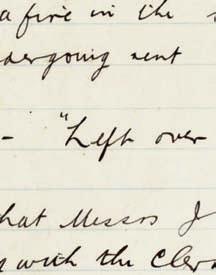 a fire in the
ndergoing sent
- "Left over
hat Messrs J
with the Cler